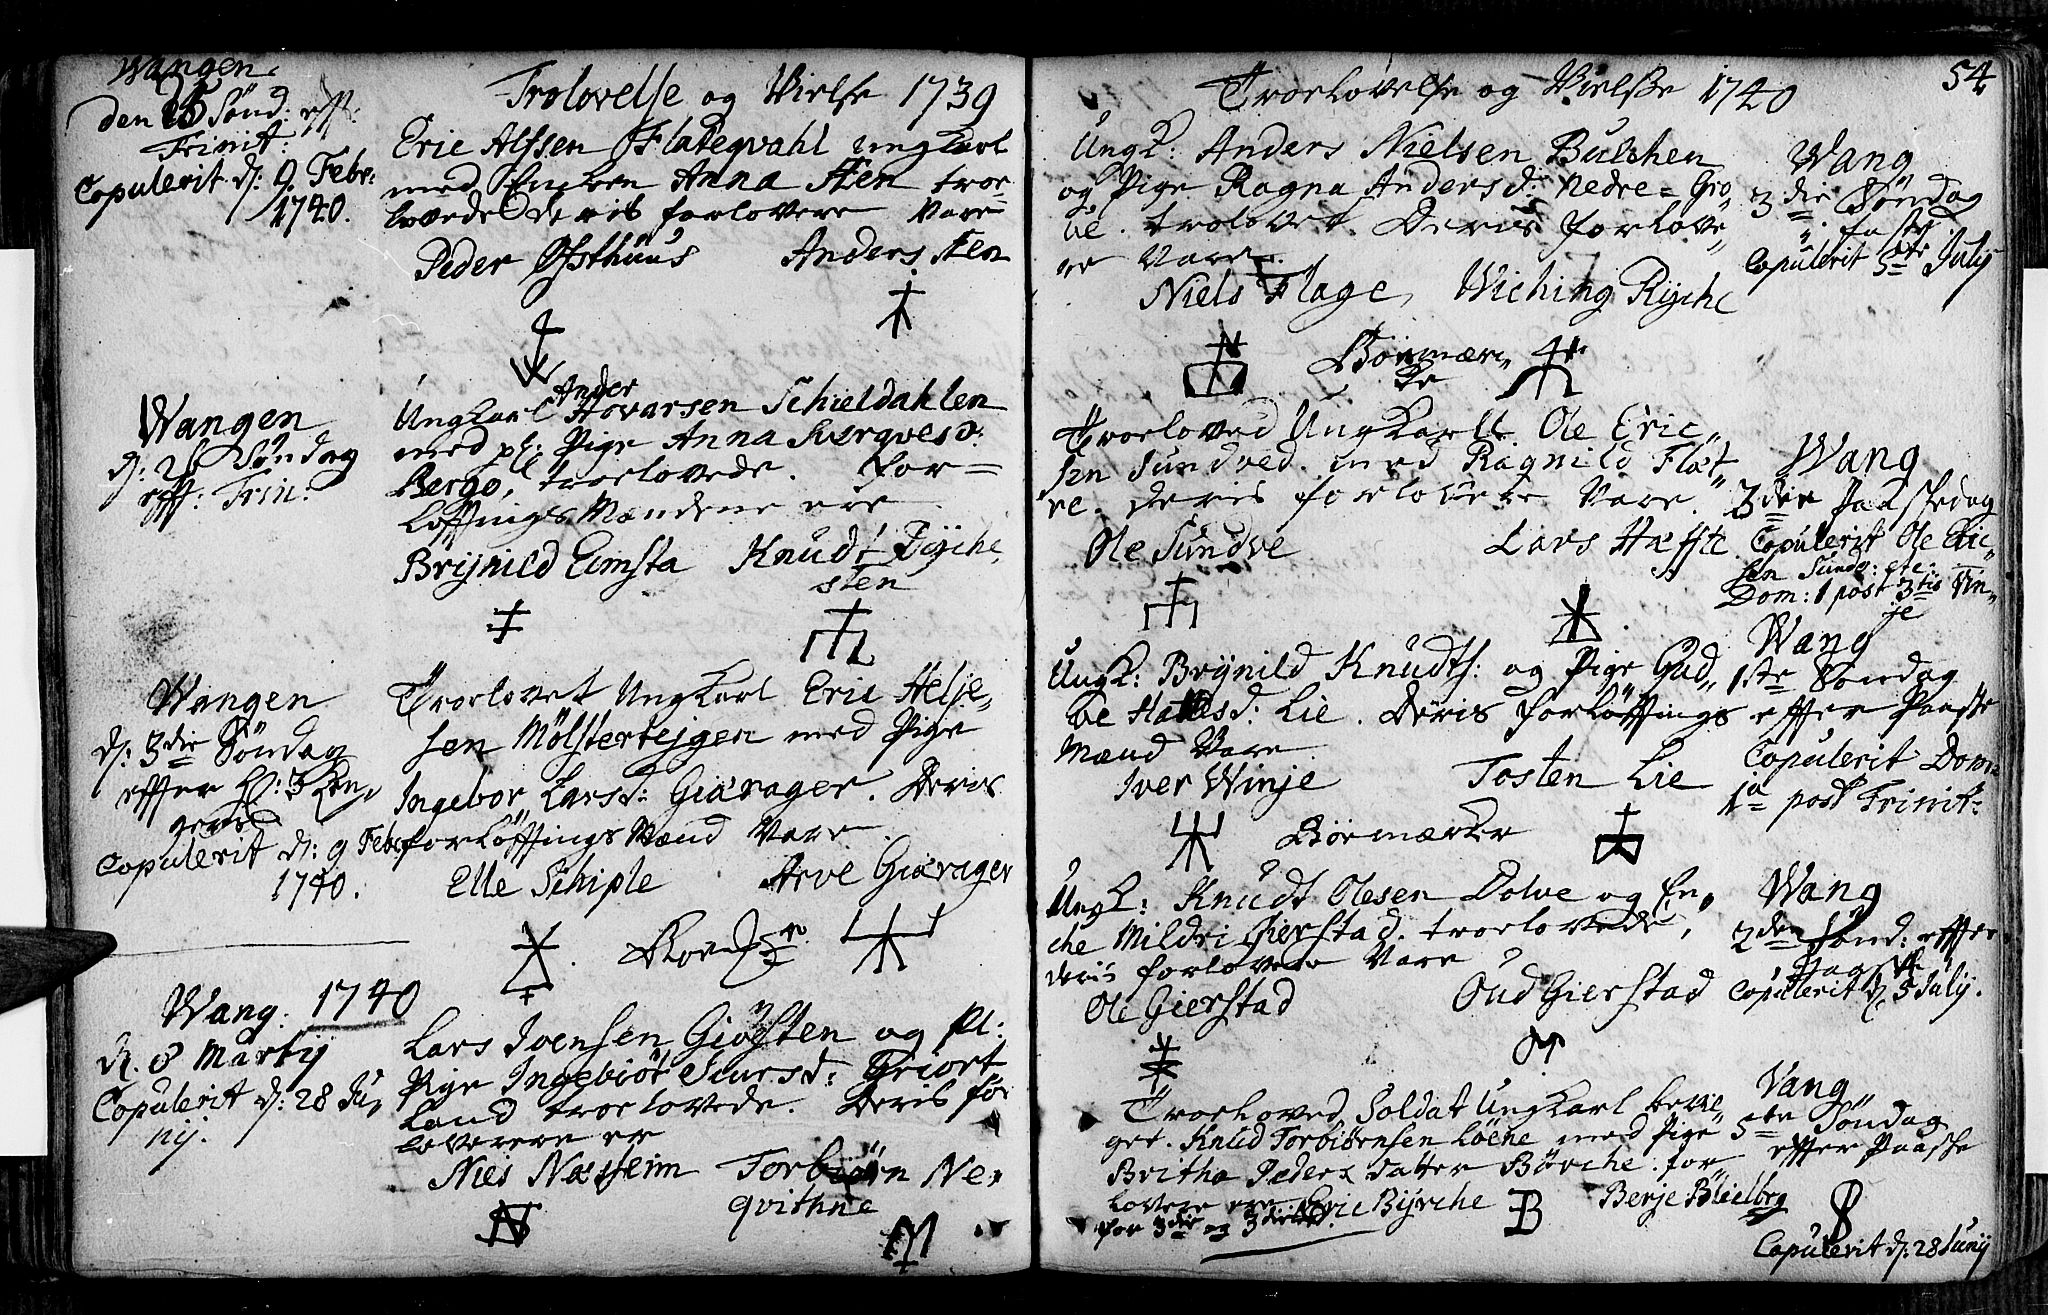 Wangen
den Sönd: eft:
Trinit:
Copulerit d: 9. Febr:
1740.
Trolovelse og Vielse 1739
Eric Alfsen Flateqvahl ungkarl
med Encken Anna Fien troe=
lovede deris forlovere Vare
Peder Östhuus Anders Fien
Wangen
d: Söndag
eff: Trin:
Ander
Ungkarl Hovarsen Schieldahlen
med pl: Pige Anna
Bergo, troelovede. For=
löffnings Mændene ere
Brijnild Eimsta Knud Dijche
sten
Wangen
d: 3die Söndag
effter H: 3 Kon,,
gers
Copulerit d: 9 Febr
1740.
Troelovet Ungkarl Eric Helje,,
sen Mölstertejgen med Pige
Ingebor Larsd: Giærager. Deris
forlöffnings Mænd Vare
Elle Schiple Arve Giærager
Wang: 1740
d. 8 Martij
Copulerit d: 28 Ju,,
nij.
Lars Ivensen Giösten og pl:
Pige Ingebiör Siursd: Griort
land troelovede. Deris for
loverere er
Niels Næsheim Torbiörn Ne,,
qvithne
Troelovelse og Vielse 1740
54
Ungk: Anders Nielsen Bulchen
og Pige Ragna Andersd: Nedre=Gro,,
ve. trolovet. Deris forlove,,
re Vare
Niels Flage, Wiching Rijche
Wang
3die Söndag
i faste
Copulerit 5te Julij
Boemær,,
ke
Troeloved Ungkarll. Ole Eric,,
sen Sundved. med Ragnild Flat,,
re. deris forlovere Vare.
Ole Sundve Lars Hæffte
Wang
3die Paaskedag
Copulerit Ole Eric,,
sen Sundv: etc:
Dom: 1 post 3tis Vin,,
je
Ungk: Brijnild Knudts: og Pige Gud,,
ve Hallesd: Lie. Deris forlöffnings
Mænd Vare
Iver Winje Tosten Lie
Boemærker
Wang
1ste Söndag
effter Paaske
Copulerit Dom:
1a post Trinit:
Ungk: Knudt Olesen Dolve og En,,
che Mildri Gierstad. troelovede,
deris forlovere Vare
Ole Gierstad Oud Gierstad
Wang
2den Sönd: effter
Paaske
Copulerit d. 5 Julij.
Troeloved Soldat Ungkarl
get. Knud Torbiörnsen Löene med Pige
Britha Peders Datter Börche. for,,
lovere ere Eric Bijrche Berje Blielbrg
for 3die og 3die led.
Vang
5te Söndag
effter Paasche
Copulerit d: 28 Junij